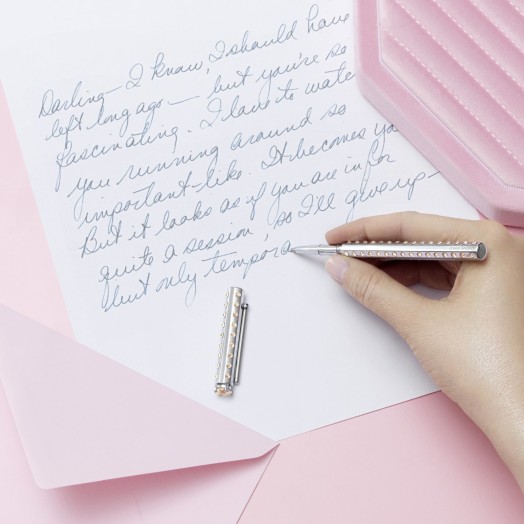 Darling — I know, I should have
left long ago — but you're so
fascinating. I love to watch
you running around so
important-like. It becomes yo
But it looks as if you are in for
quite a session, so I'll give up —
but only tempora